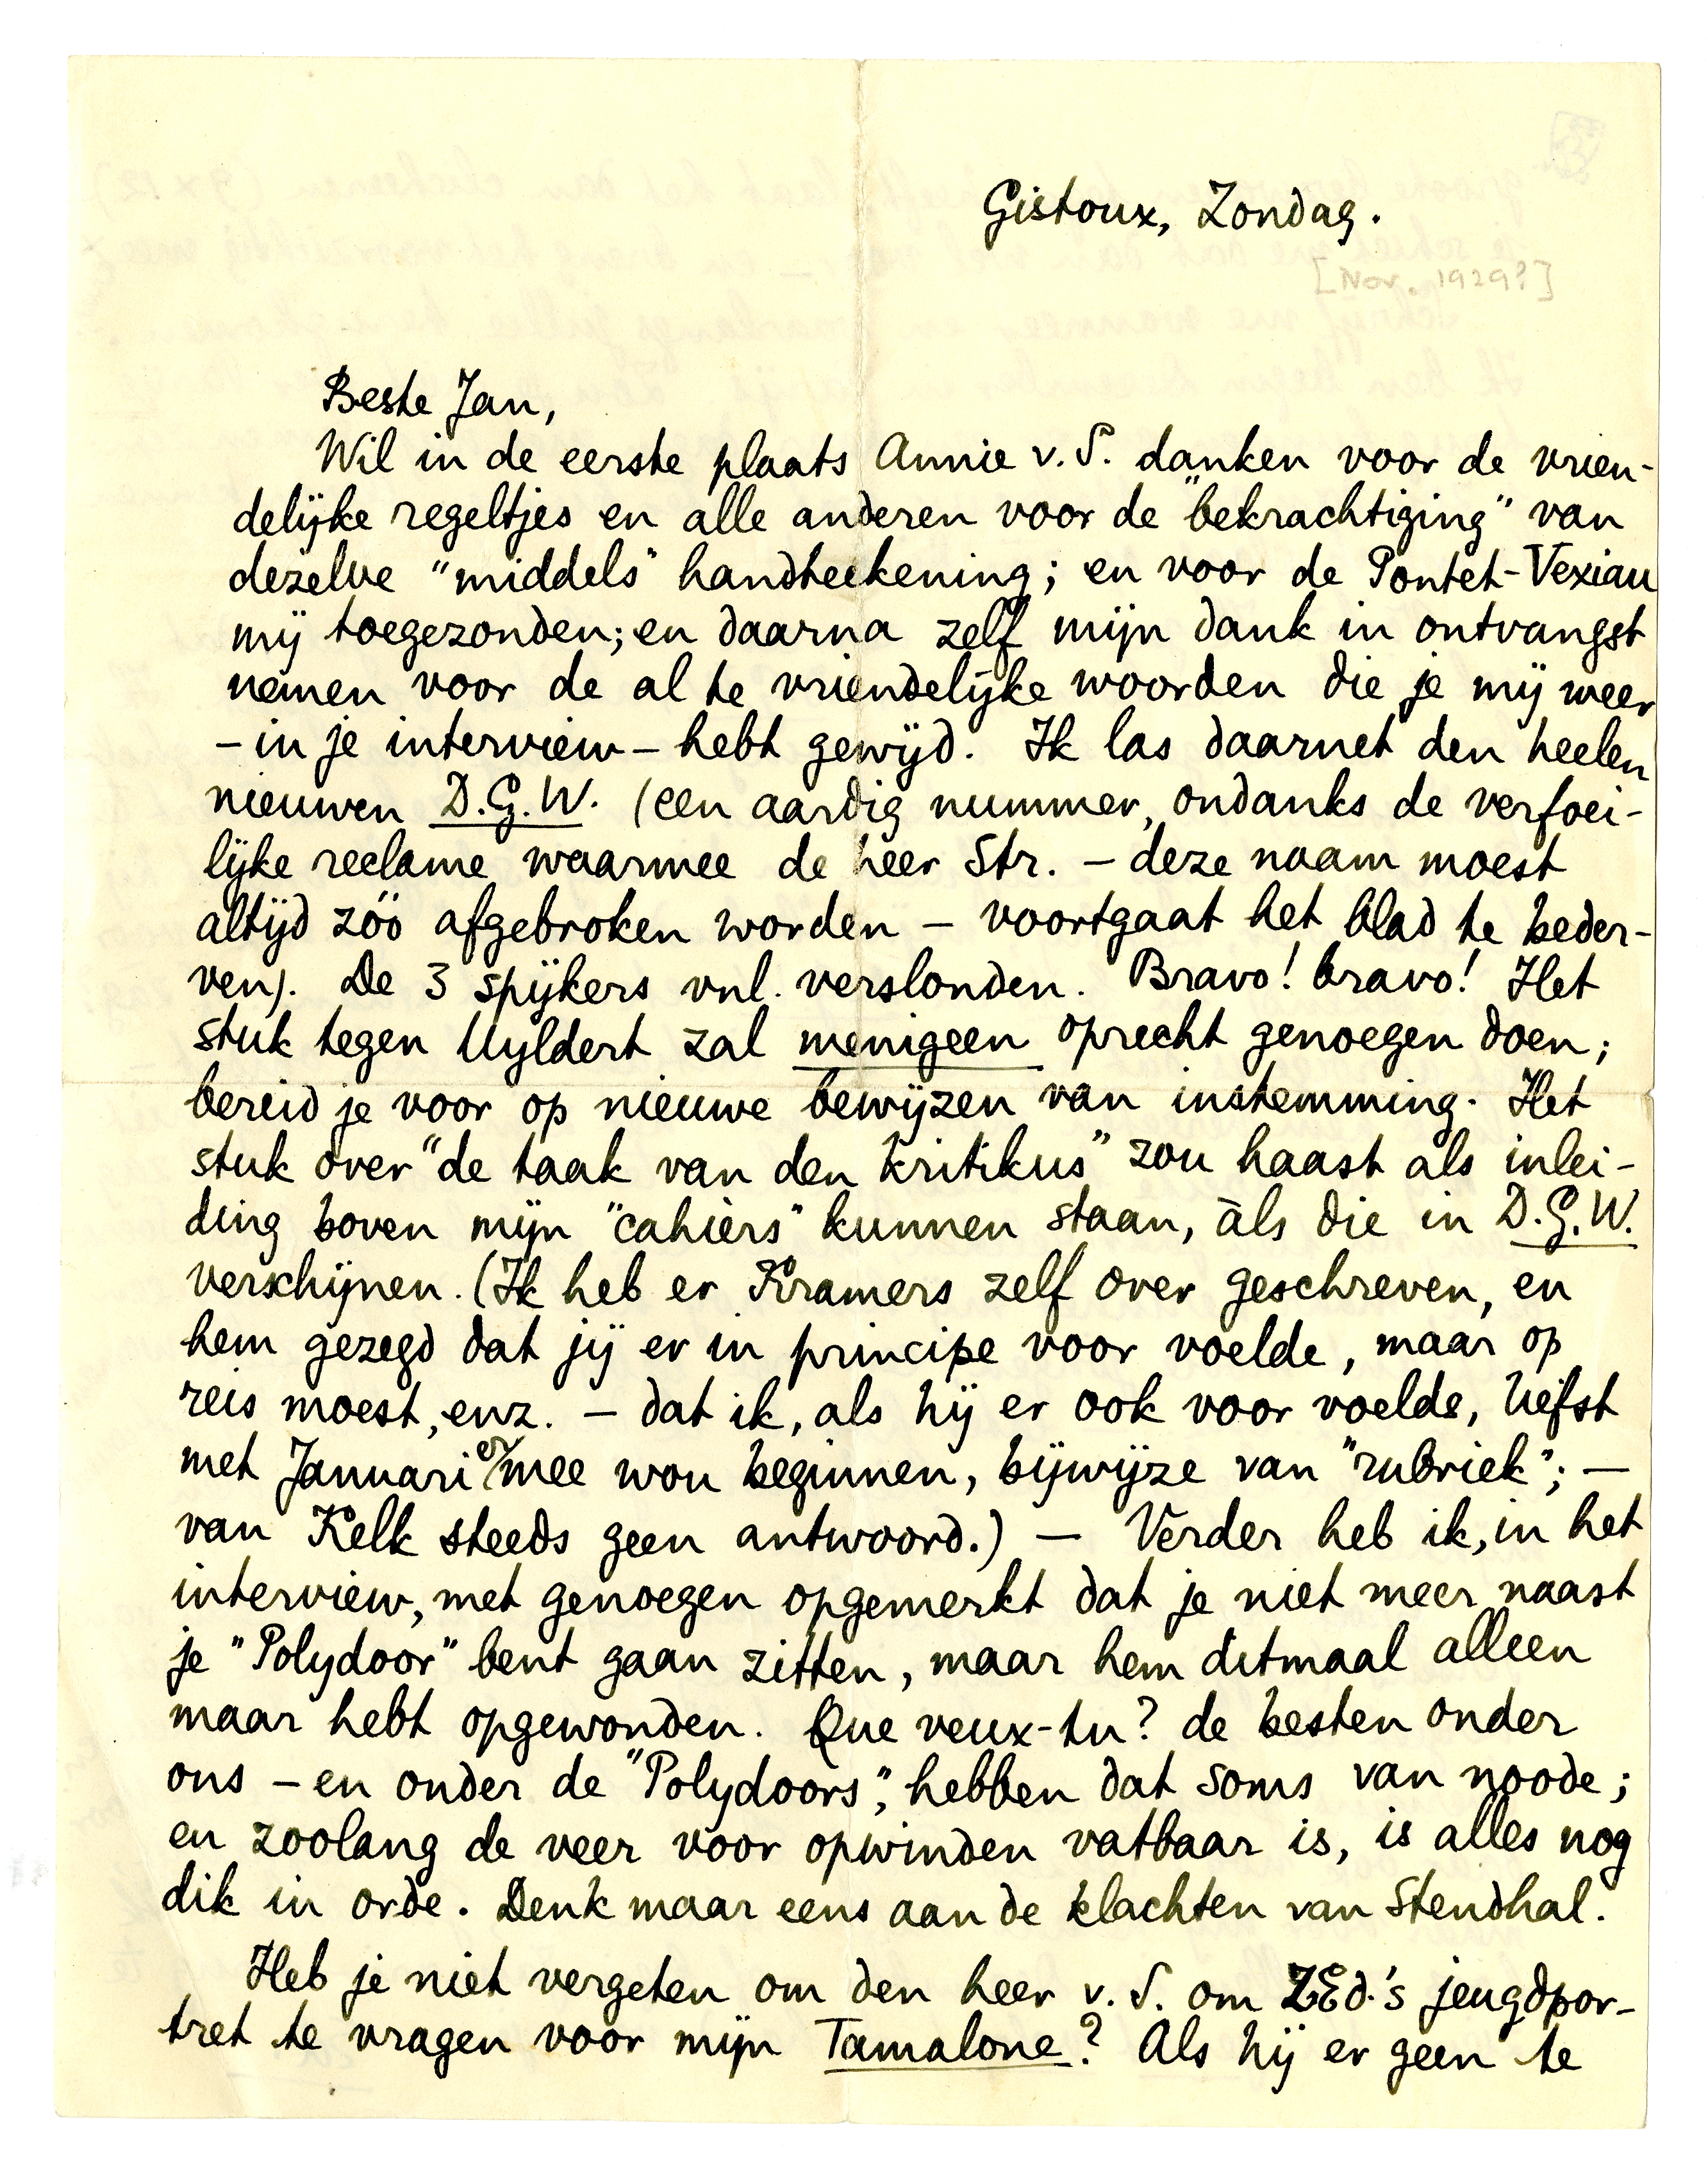 Gistoux, Zondag.
[Nov. 1929?]
Beste Jan,
Wil in de eerste plaats Annie v. S. danken voor de vrien-
delijke regeltjes en alle anderen voor de "bekrachtiging" van
dezelve "middels" handteekening; en voor de Pontet-Vexiau
mij toegezonden; en daarna zelf mijn dank in ontvangst
nemen voor de al te vriendelijke woorden die je mij weer
– in je interview – hebt gewijd. Ik las daarnet den heelen
nieuwen D.G.W. (een aardig nummer, ondanks de verfoei-
lijke reclame waarmee de heer Str. – deze naam moest
altijd zóó afgebroken worden – voortgaat het blad te beder-
ven). De 3 spijkers vnl. verslonden. Bravo! bravo! Het
stuk tegen Uyldert zal menigeen oprecht genoegen doen;
bereid je voor op nieuwe bewijzen van instemming. Het
stuk over "de taak van den kritikus" zou haast als inlei-
ding boven mijn "cahiers" kunnen staan, àls die in D.G.W.
verschijnen. (Ik heb er Kramers zelf over geschreven, en
hem gezegd dat jij er in principe voor voelde, maar op
reis moest, enz. – dat ik, als hij er ook voor voelde, liefst
met Januari er mee wou beginnen, bijwijze van "rubriek"; –
van Kelk steeds geen antwoord.) – Verder heb ik, in het
interview, met genoegen opgemerkt dat je niet meer naast
je "Polydoor" bent gaan zitten, maar hem ditmaal alleen
maar hebt opgewonden. Que veux-tu? de besten onder
ons – en onder de "Polydoors", hebben dat soms van noode;
en zoolang de veer voor opwinden vatbaar is, is alles nog
dik in orde. Denk maar eens aan de klachten van Stendhal.
Heb je niet vergeten om den heer v. S. om ZEd.'s jeugdpor-
tret te vragen voor mijn Tamalone? Als hij er geen te